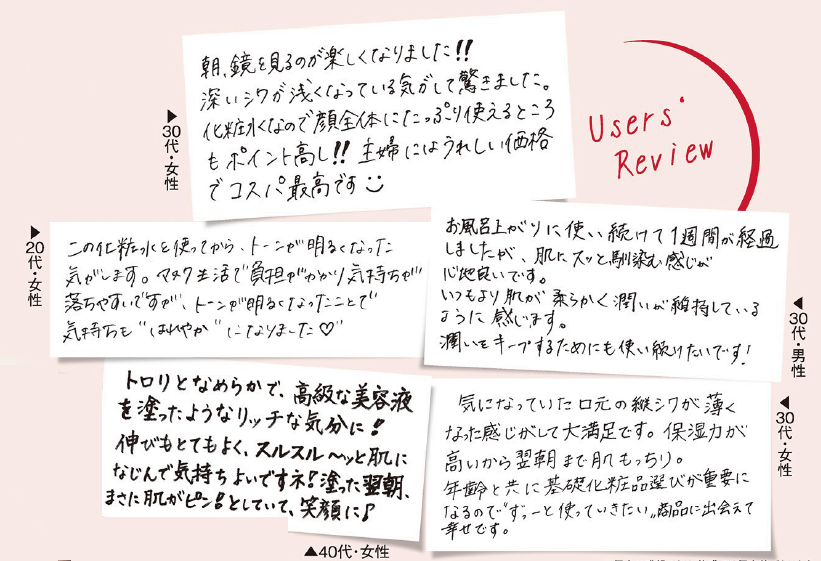 朝、鏡を見るのが楽しくなりました!!
深いシワが浅くなっている気がして驚きました。
化粧水なので顔全体にたっぷり使えるところ
もポイント高し!! 主婦にはうれしい価格
でコスパ最高です
▶30代・女性
Users'
Review
この化粧水を使ってから、トーンが明るくなった
気がします。マスク生活で負担がかかり気持ちが
落ちやすいですが、トーンが明るくなったことで
気持ちも"はれやか"になりました♡
▶20代・女性
お風呂上がりに使い続けて1週間が経過
しましたが、肌にスッと馴染む感じが
心地良いです。
いつもより肌が柔らかく潤いが維持している
ように感じます。
潤いをキープするためにも使い続けたいです!
◀30代・男性
トロリとなめらかで、高級な美容液
を塗ったようなリッチな気分に!
伸びもとてもよく、スルスル〜ッと肌に
なじんで気持ちよいですネ!塗った翌朝、
まさに肌がピン!としていて、笑顔に♪
▲40代・女性
気になっていた口元の縦シワが薄く
なった感じがして大満足です。保湿力が
高いから翌朝まで肌もっちり。
年齢と共に基礎化粧品選びが重要に
なるので"ずっーと使っていきたい"商品に出会えて
幸せです。
◀30代・女性